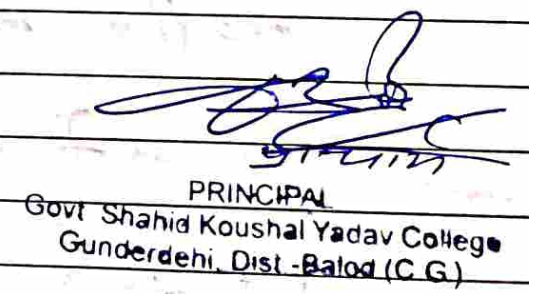 PRINCIPAL
Govt Shahid Koushal Yadav College
Gunderdehi, Dist.-Balod (C.G.)